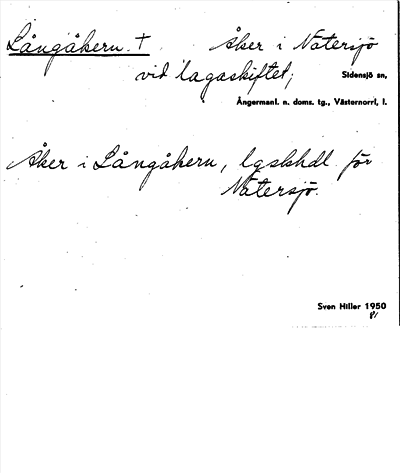 Långåkern. † Åker i Natersjö
vid lagaskiftet;
Sidensjö sn,
Ångermanl. n. doms. tg., Västernorrl, l.
Åker i Långåkern, lgskhdl. för
Natersjö.
Sven Hiller 1950